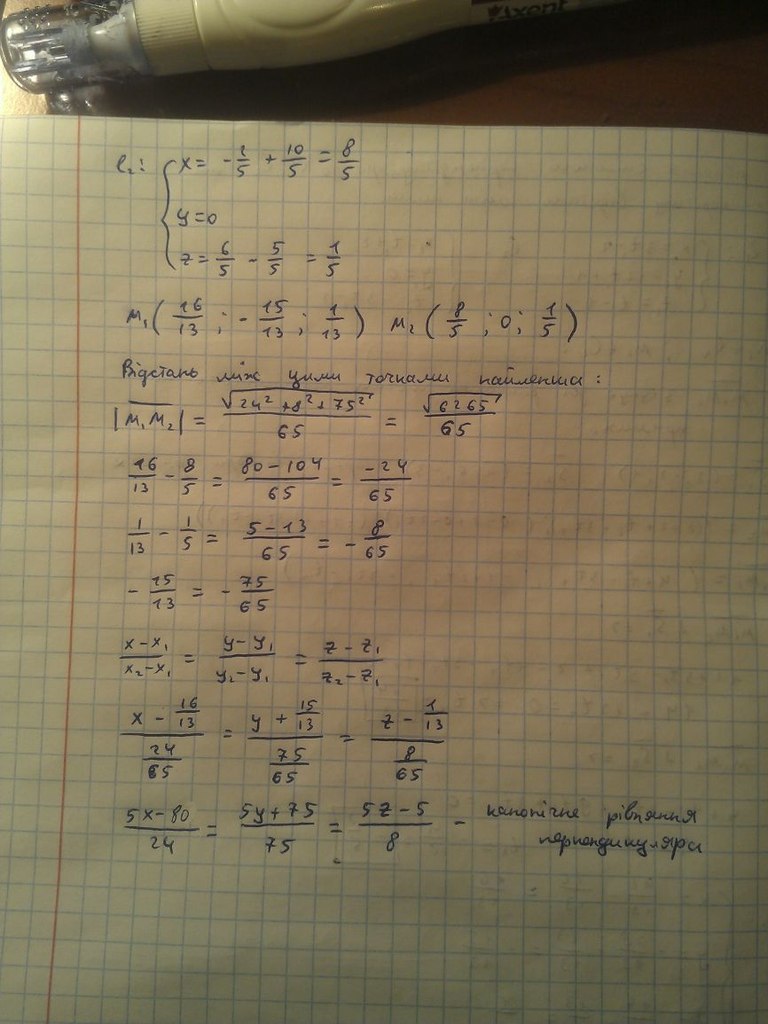 Axent
l₂: { x = -2/5 + 10/5 = 8/5
y = 0
z = 6/5 - 5/5 = 1/5
M₁(16/13; -15/13; 1/13) M₂(8/5; 0; 1/5)
Відстань між цими точками найменша:
|M₁M₂| = √(24² + 8² + 75²)/65 = √6265/65
16/13 - 8/5 = (80-104)/65 = -24/65
1/13 - 1/5 = (5-13)/65 = -8/65
-15/13 = -75/65
(x-x₁)/(x₂-x₁) = (y-y₁)/(y₂-y₁) = (z-z₁)/(z₂-z₁)
(x - 16/13)/(24/65) = (y + 15/13)/(75/65) = (z - 1/13)/(8/65)
(5x-80)/24 = (5y+75)/75 = (5z-5)/8 - канонічне рівняння
перпендикуляра